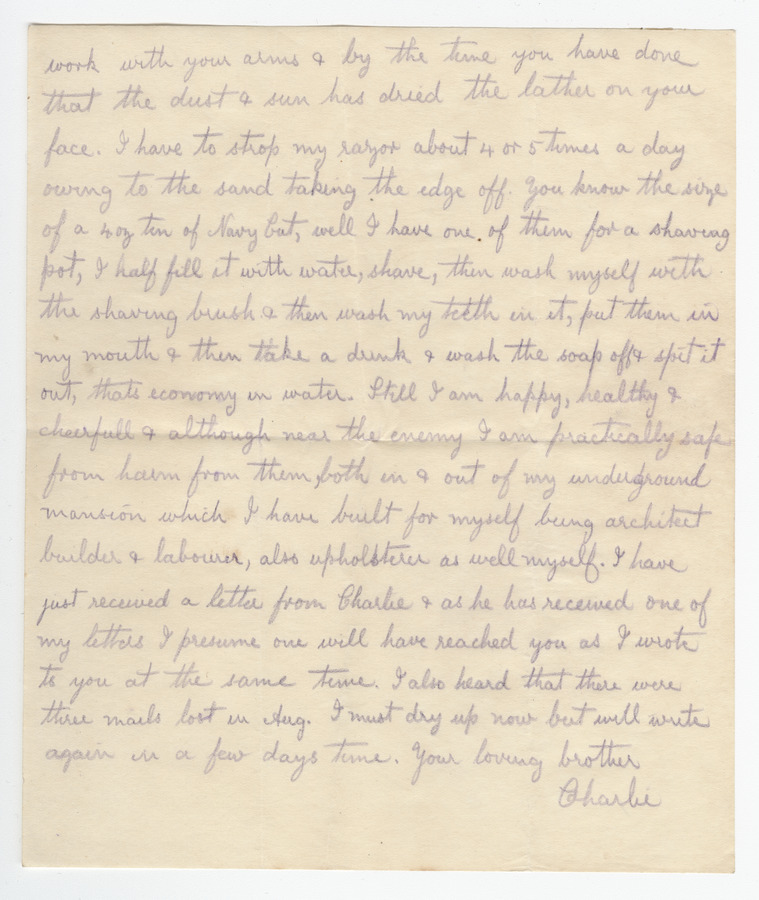 work with your arms & by the time you have done
that the dust & sun has dried the lather on your
face. I have to strop my razor about 4 or 5 times a day
owing to the sand taking the edge off. You know the size
of a 4oz tin of Navy Cut, well I have one of them for a shaving
pot, I half fill it with water, shave, then wash myself with
the shaving brush & then wash my teeth in it, put them in
my mouth & then take a drink & wash the soap off & spit it
out, thats economy in water. Still I am happy, healthy &
cheerfull & although near the enemy I am practically safe
from harm from them, both in & out of my underground
mansion which I have built for myself being architect
builder & labourer, also upholsterer as well myself. I have
just received a letter from Charlie & as he has received one of
my letters I presume one will have reached you as I wrote
to you at the same time. I also heard that there were
three mails lost in Aug. I must dry up now but will write
again in a few days time. Your loving brother
Charlie